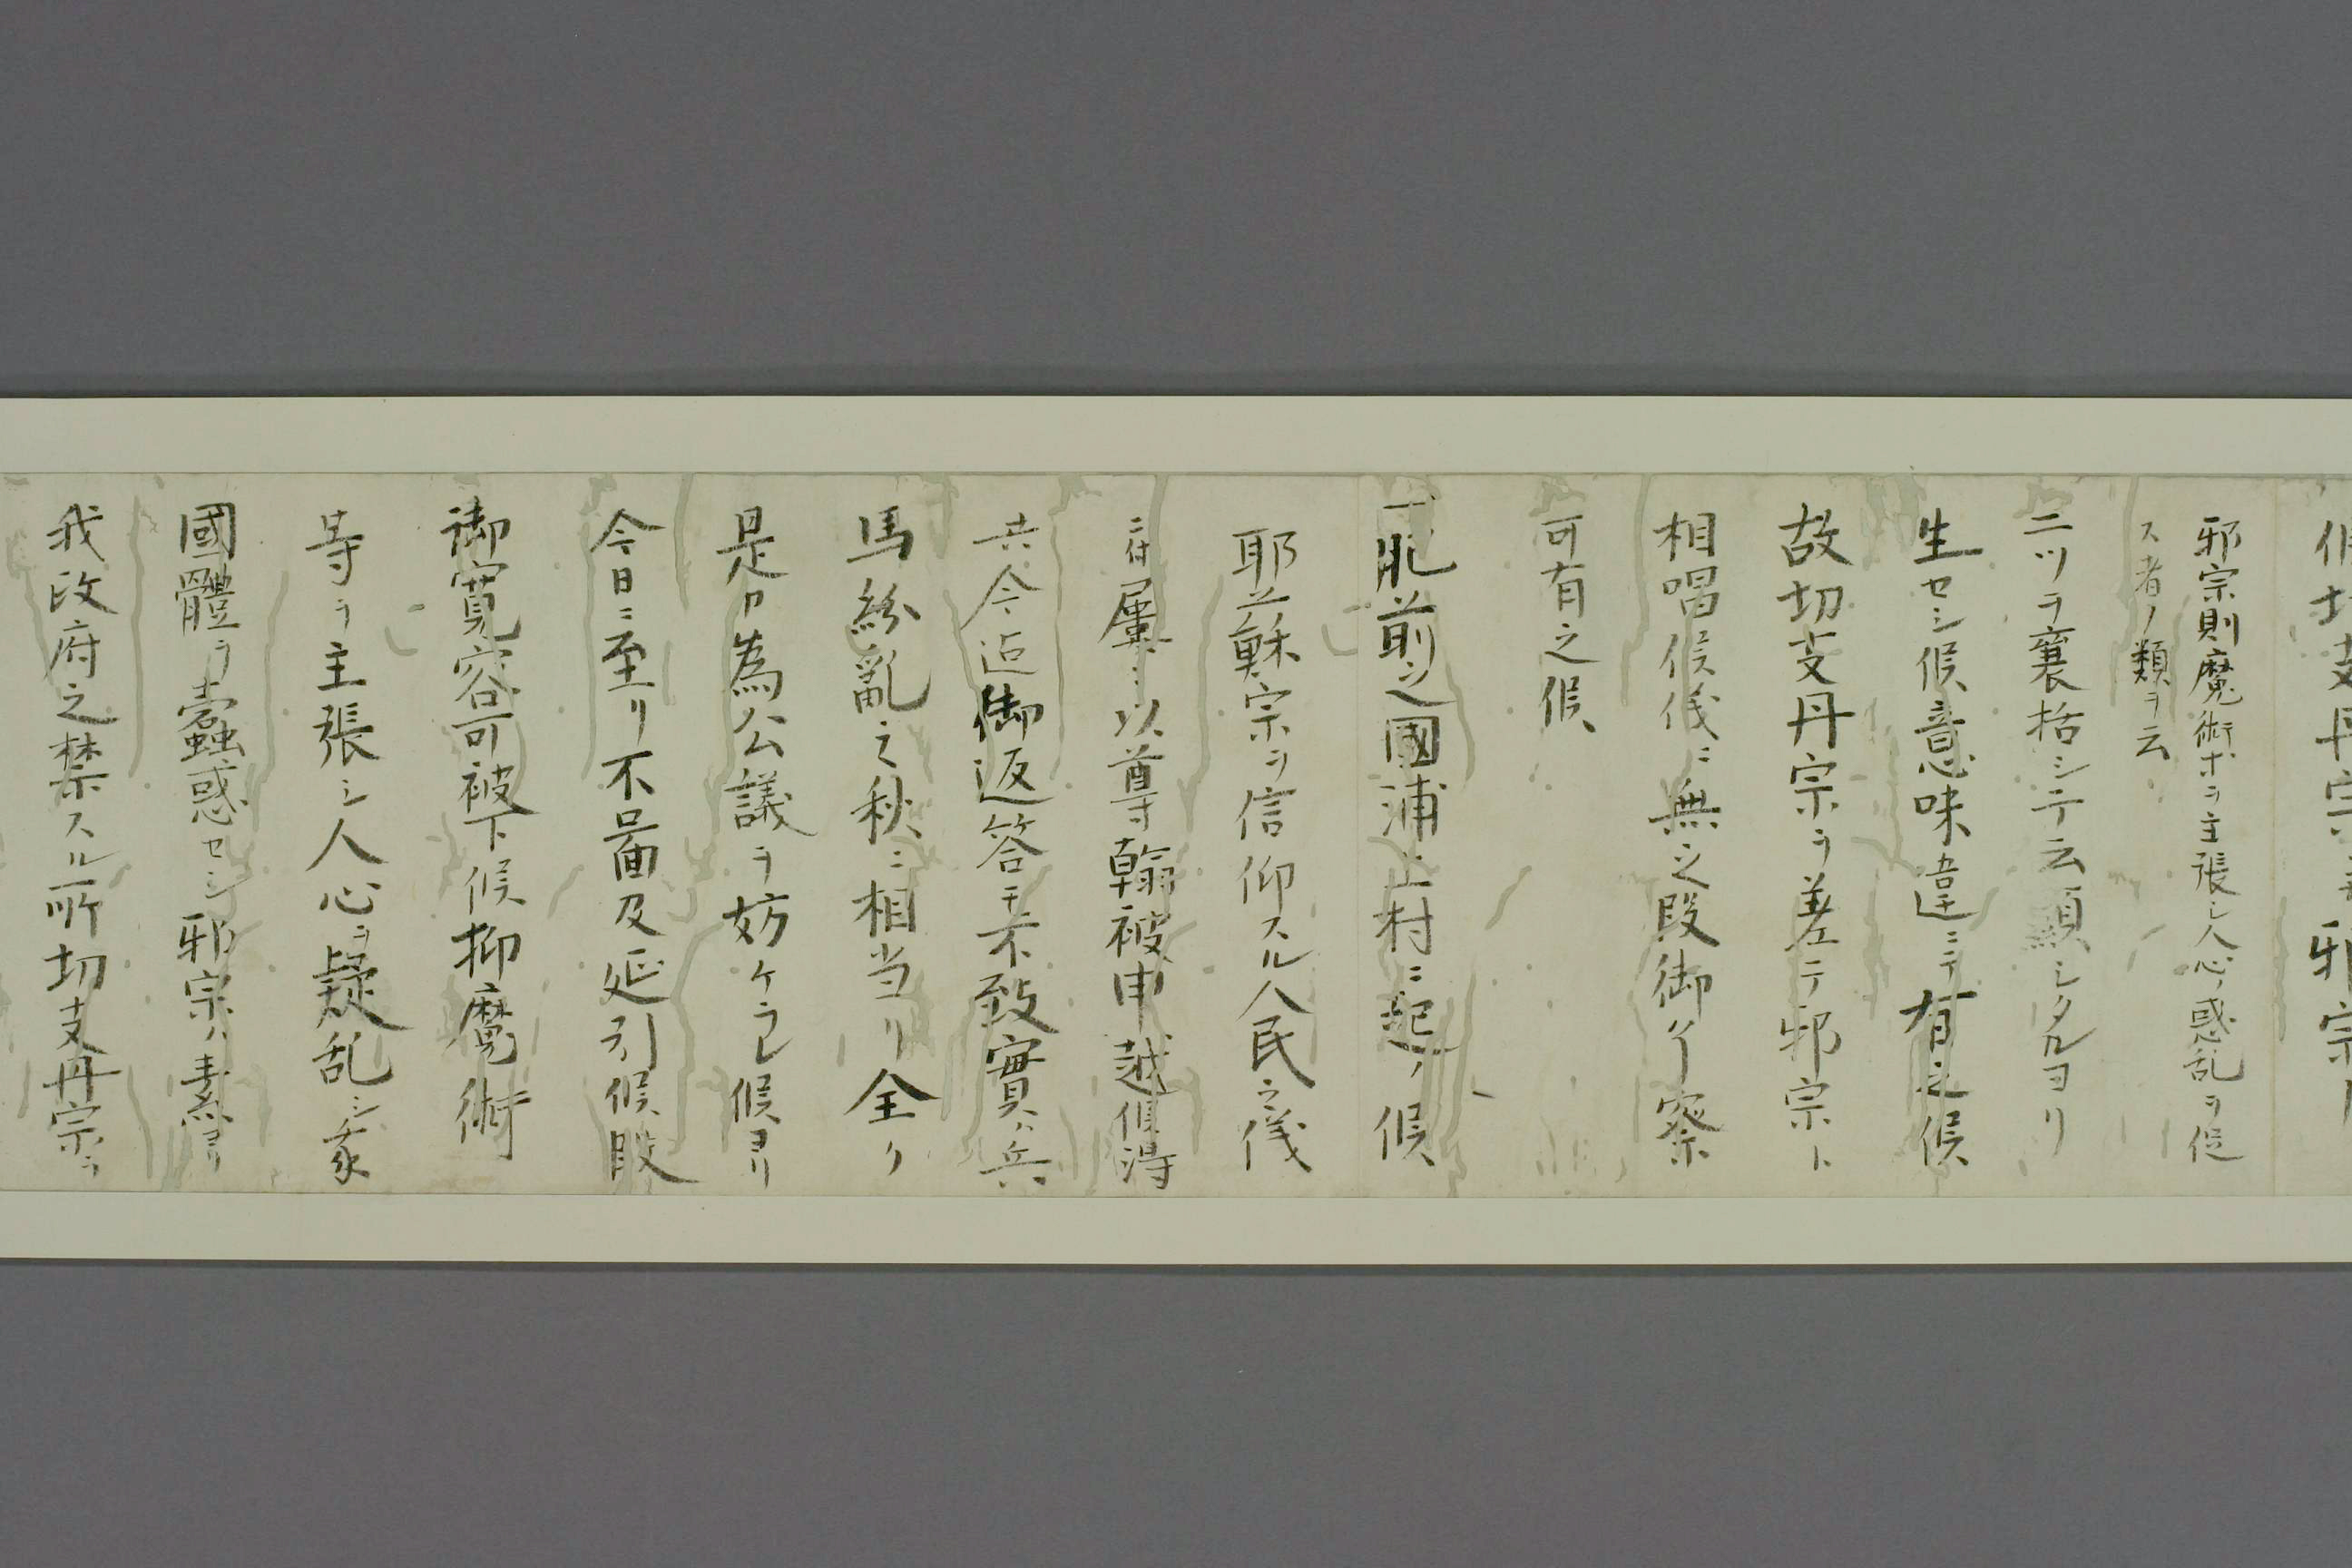 邪宗則魔術ホヲ主張シ人心ノ惑乱ヲ促
ス者ノ類ヲ云
ニツヲ襄括シテ云顕シタルヨリ
生セシ候意味違ニテ有之候
故切支丹宗ヲ差テ邪宗ト
相唱候儀ニ無之段御了察
可有之候
一肥前之國浦上村ニ起ノ候
耶蘇宗ヲ信仰スル人民之儀
ニ付屢々以尊翰被申越候得
共今迠御返答モ不致實ハ兵
馬紛亂之秋ニ相当リ全ク
是カ為公議ヲ妨ケラレ候ヨリ
今日ニ至リ不啚及延引候段
御寛容可被下候抑魔術
等ヲ主張シ人心ヲ疑乱シ家
國體ヲ蠹惑セシ邪宗ハ素ヨリ
我政府之禁スル所切支丹宗ヲ